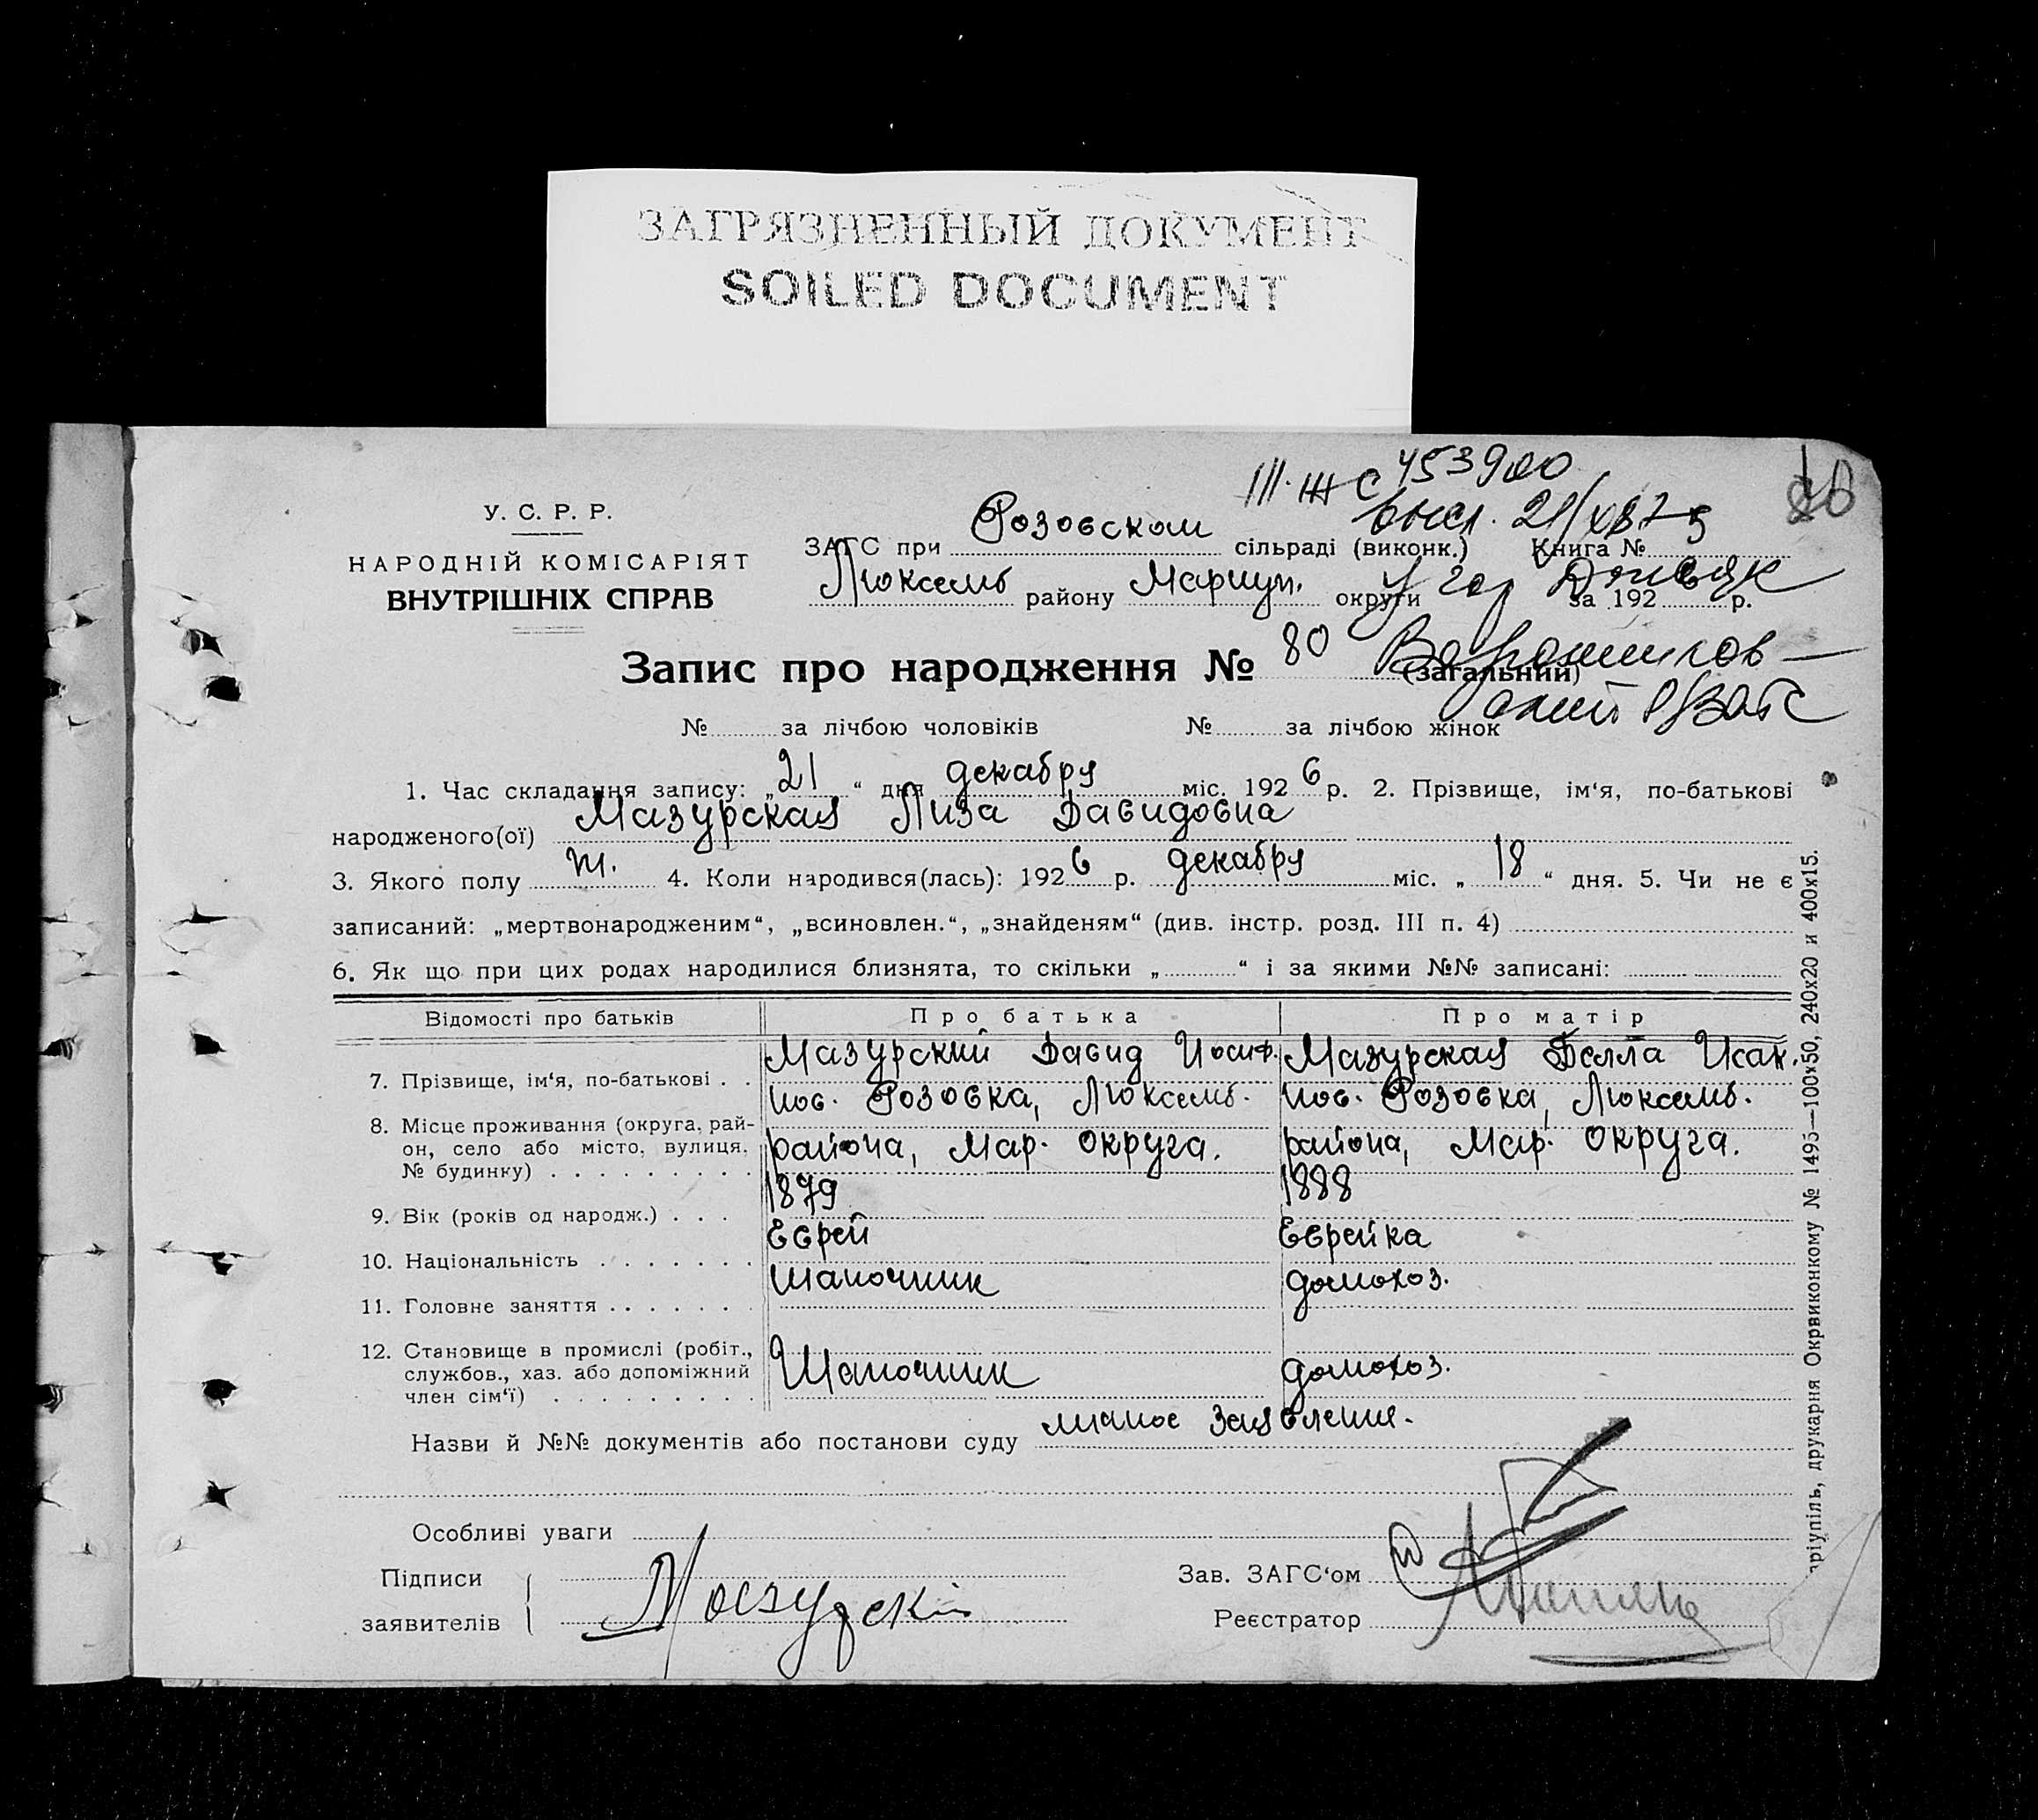 ЗАГРЯЗНЕННЫЙ ДОКУМЕНТ
SOILED DOCUMENT
У. С. Р. Р.
НАРОДНІЙ КОМІСАРІЯТ
ВНУТРІШНІХ СПРАВ
III-ЖС 453900
80
ЗАГС при Розовском сільраді (виконк.) Книга №
Люксемб району Мариуп. округи за 192 р.
Запис про народження № 80 (загальний)
№ за лічбою чоловіків № за лічбою жінок
1. Час складання запису: „21“ дня декабря міс. 1926 р. 2. Прізвище, ім‘я, по-батькові
народженого(ої) Мазурская Лиза Давидовна
3. Якого полу ж. 4. Коли народився(лась): 1926 р. декабря міс. „18“ дня. 5. Чи не є
записаний: „мертвонародженим“, „всиновлен.“, „знайденям“ (див. інстр. розд. III п. 4)
6. Як що при цих родах народилися близнята, то скільки „ “ і за якими №№ записані:
Відомості про батьків Про батька Про матір
7. Прізвище, ім‘я, по-батькові . . Мазурский Давид Иосиф. Мазурская Белла Исак.
8. Місце проживання (округа, рай-
он, село або місто, вулиця,
№ будинку) . . . . . . . . .
пос. Розовка, Люксемб. пос. Розовка, Люксемб.
района, Мар. округа. района, Мар. округа.
9. Вік (років од народж.) . . . 1879 1888
10. Національність . . . . . . . Еврей Еврейка
11. Головне заняття . . . . . . . Шапочник домохоз.
12. Становище в промислі (робіт.,
службов., хаз. або допоміжний
член сім‘ї) . . . . . . . . Шапочник домохоз.
Назви й №№ документів або постанови суду личное заявление.
Особливі уваги
Підписи
заявителів Мазурскій
Зав. ЗАГС‘ом
Реєстратор
аріупіль, друкарня Окрвиконкому № 1495—100×50, 240×20 и 400×15.